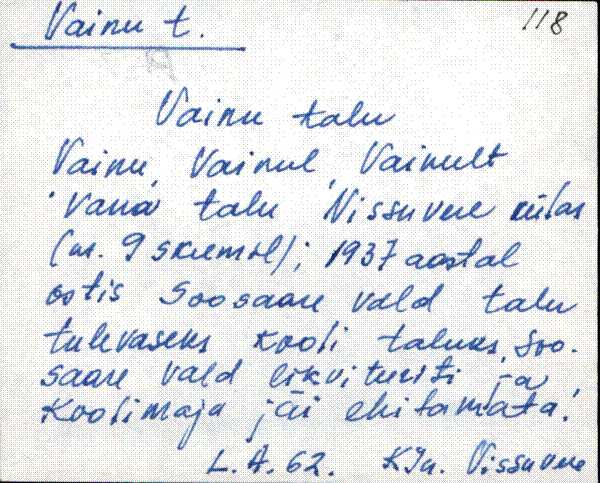 Vainu t.
118
Vainu talu
Vainu, Vainul, Vainult
Vana talu Nissuvere külas
(nr. 9 skeemil); 1937 aastal
ostis Soosaare vald talu
tulevaseks kooli taluks, Soo-
saare vald likvideeriti ja
koolimaja jäi ehitamata.
L. A. 62. KJn. Vissuvere